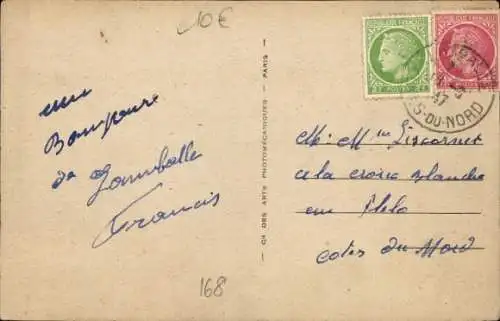 10€
un
Bonjour
de Lamballe
Francis
168
Cie DES ARTS PHOTOMÉCANIQUES — PARIS
RÉPUBLIQUE FRANÇAISE
POSTES
47
S-DU-NORD
M. Mme Liscornet
a la croix blanche
en Plélo
Cotes du Nord